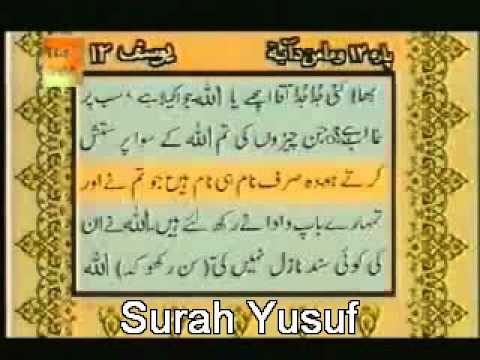 یوسف ۱۲ پارہ ۱۲ ومامن دآبة
بھلا کئی جُدا جُدا آقا اچھے یا اللہ جو اکیلا ہے، سب پر
غالب ہے جن چیزوں کی تم اللہ کے سوا پرستش
کرتے ہو وہ صرف نام ہی نام ہیں جو تم نے اور
تمہارے باپ دادا نے رکھ لئے ہیں۔ اللہ نے ان
کی کوئی سند نازل نہیں کی (سن رکھو کہ) اللہ
Surah Yusuf